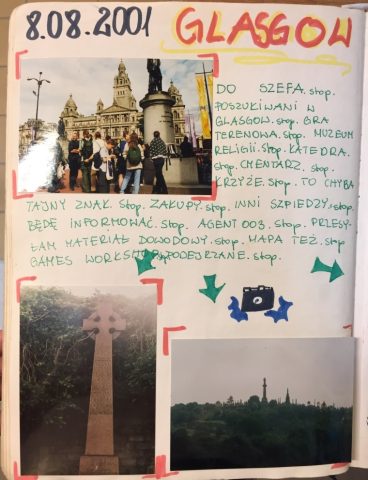 8.08.2001 GLASGOW
DO SZEFA. stop.
POSZUKIWANI W
GLASGOW. stop. GRA
TERENOWA. stop. MUZEUM
RELIGII. stop. KATEDRA.
stop. CMENTARZ. stop.
KRZYŻE. stop. TO CHYBA
TAJNY ZNAK. stop. ZAKUPY. stop. INNI SZPIEDZY. stop.
BĘDĘ INFORMOWAĆ. stop. AGENT 003. PRZESY-
ŁAM MATERIAŁ DOWODOWY. stop. MAPA TEŻ. stop
GAMES WORKSHOP PODEJRZANE. stop.